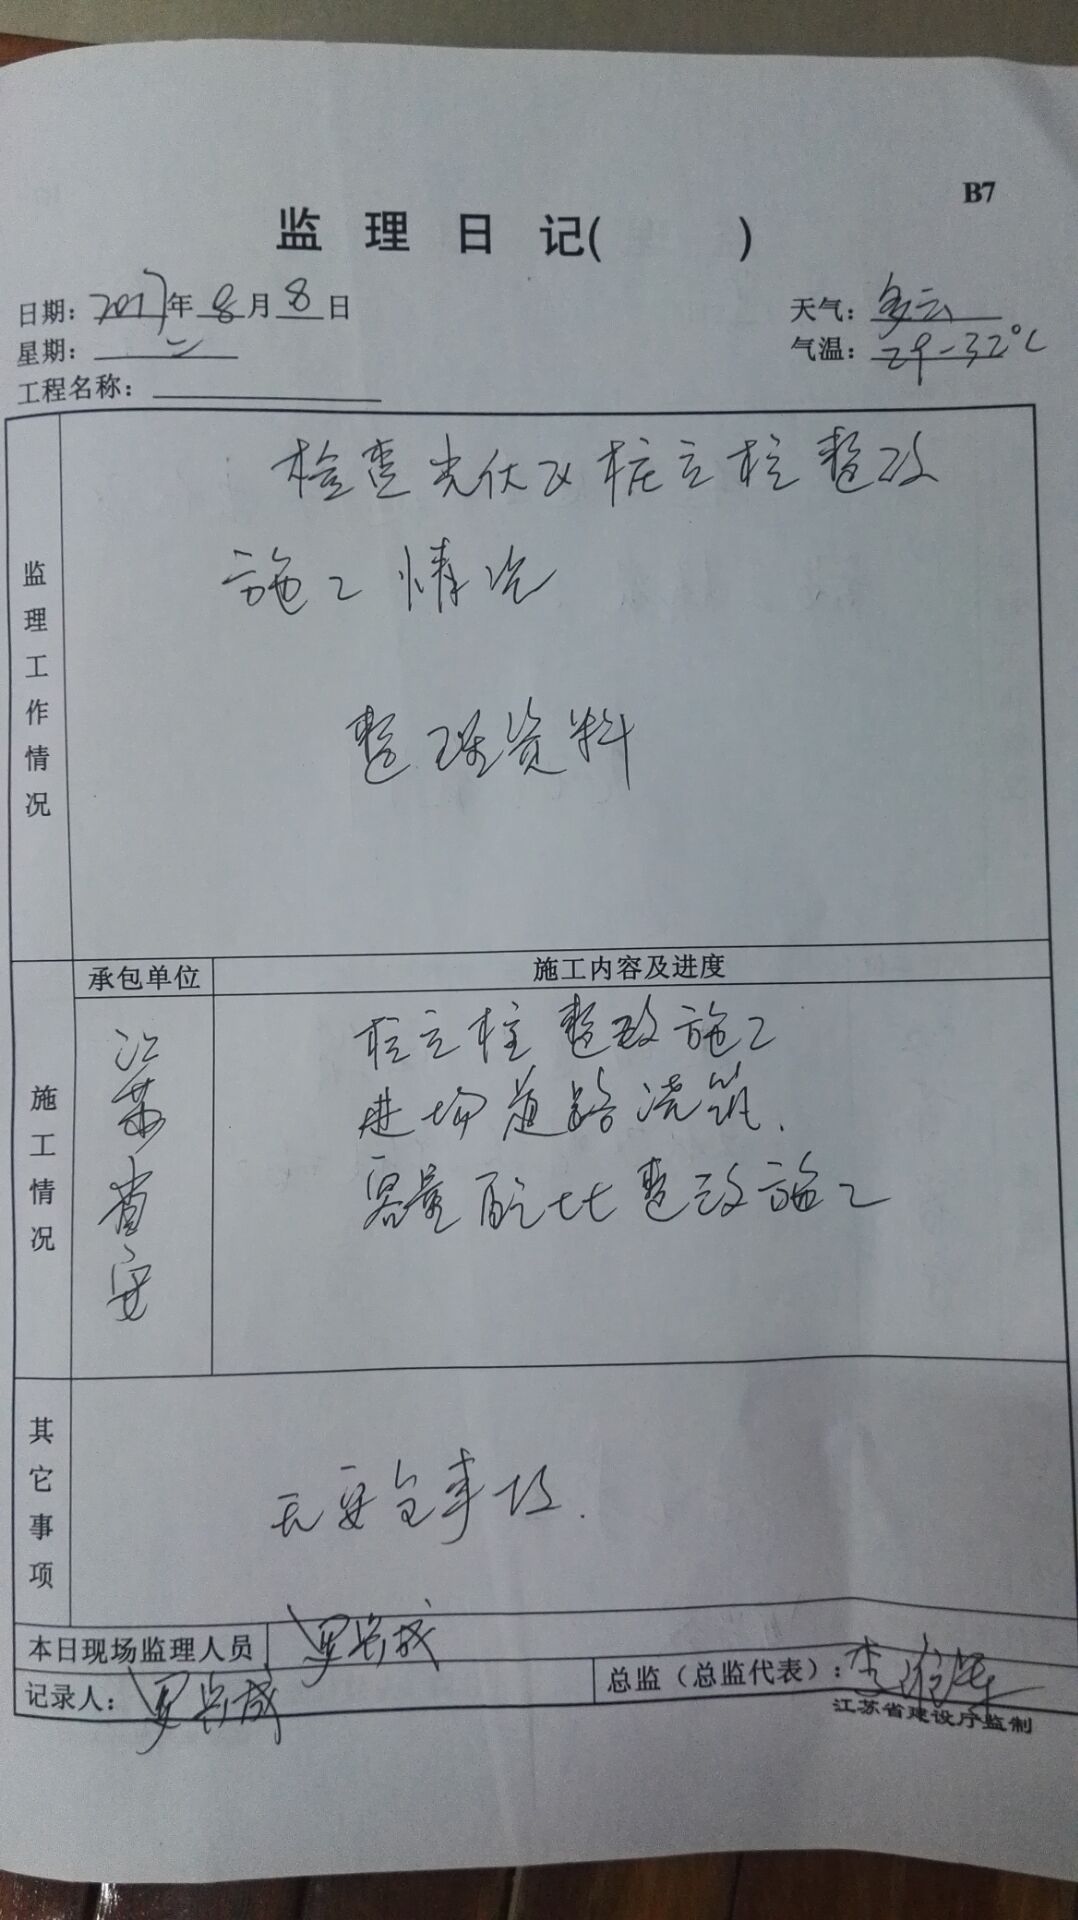 B7
监理日记( )
日期：2017年8月8日
天气：多云
星期：二
气温：29-32℃
工程名称：
监理工作情况
检查光伏区桩立柱整改
施工情况
整理资料
承包单位
施工内容及进度
施工情况
江苏省安
桩立柱整改施工
进场道路浇筑.
容量配比整改施工
其它事项
无安全事故.
本日现场监理人员
记录人：
总监（总监代表）：李
江苏省建设厅监制